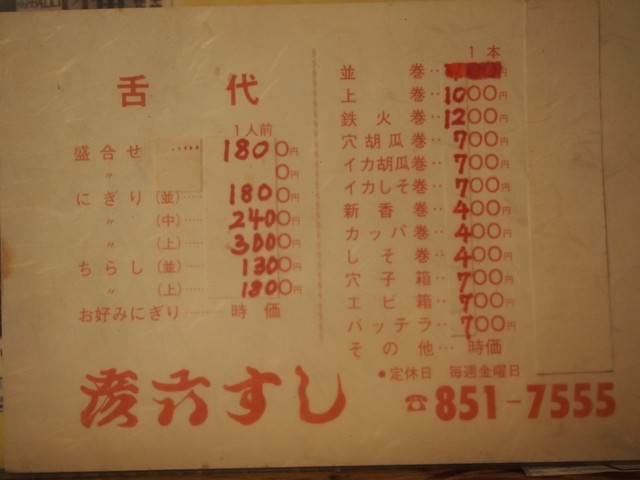 舌代
1人前
盛合せ ‥‥ 1800円
〃 0円
にぎり(並)‥‥ 1800円
〃 (中)‥‥ 2400円
〃 (上)‥‥ 3000円
ちらし(並)‥‥ 1300円
〃 (上)‥‥ 1800円
お好みにぎり‥‥ 時価
1本
並巻‥ 円
上巻‥1000円
鉄火巻‥1200円
穴胡瓜巻‥700円
イカ胡瓜巻‥700円
イカしそ巻‥700円
新香巻‥400円
カッパ巻‥400円
しそ巻‥400円
穴子箱‥700円
エビ箱‥700円
バッテラ‥700円
その他‥時価
●定休日 毎週金曜日
六すし
☎851-7555